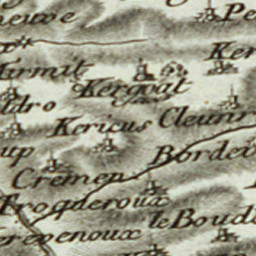 neuve
Pe
Ker
Kirmit
Kergoat
ldro
Kericus
Cleunr
up
Bordei
Cremen
Frogderoux
le Boudi
erevenoux